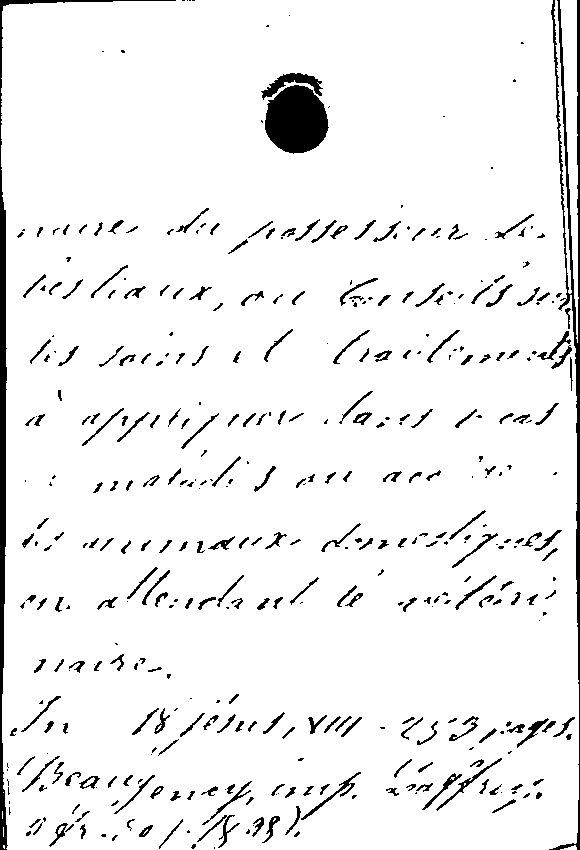 naire du possesseur de
bestiaux, ou Conseils sur
les soins et traitements
à appliquer dans le cas
maladies ou
des animaux domestiques,
en attendant le vétéri
naire.
In 18 jésus, VIII - 253 pages.
Beaugency, imp. Laffray.